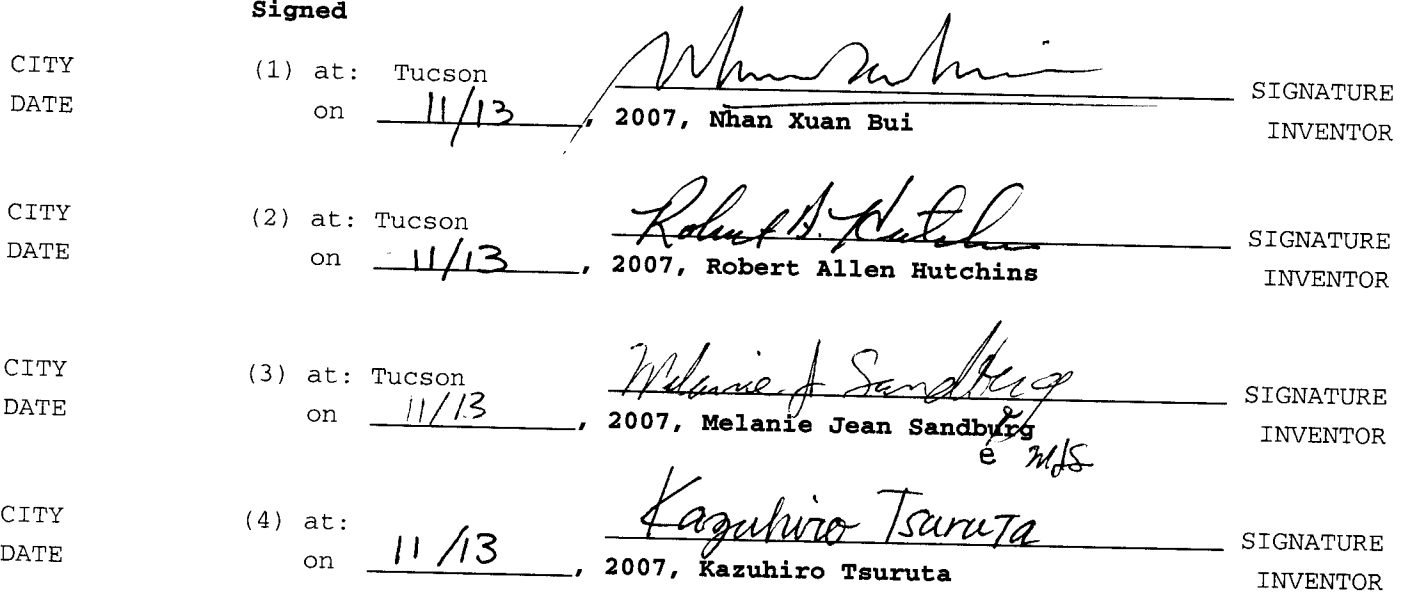 Signed
CITY (1) at: Tucson SIGNATURE
DATE on 11/13, 2007, Nhan Xuan Bui INVENTOR
CITY (2) at: Tucson Robert A. Hutchins SIGNATURE
DATE on 11/13, 2007, Robert Allen Hutchins INVENTOR
CITY (3) at: Tucson Melanie J Sandberg SIGNATURE
DATE on 11/13, 2007, Melanie Jean Sandburg INVENTOR
e MJS
CITY (4) at: Kazuhiro Tsuruta SIGNATURE
DATE on 11/13, 2007, Kazuhiro Tsuruta INVENTOR